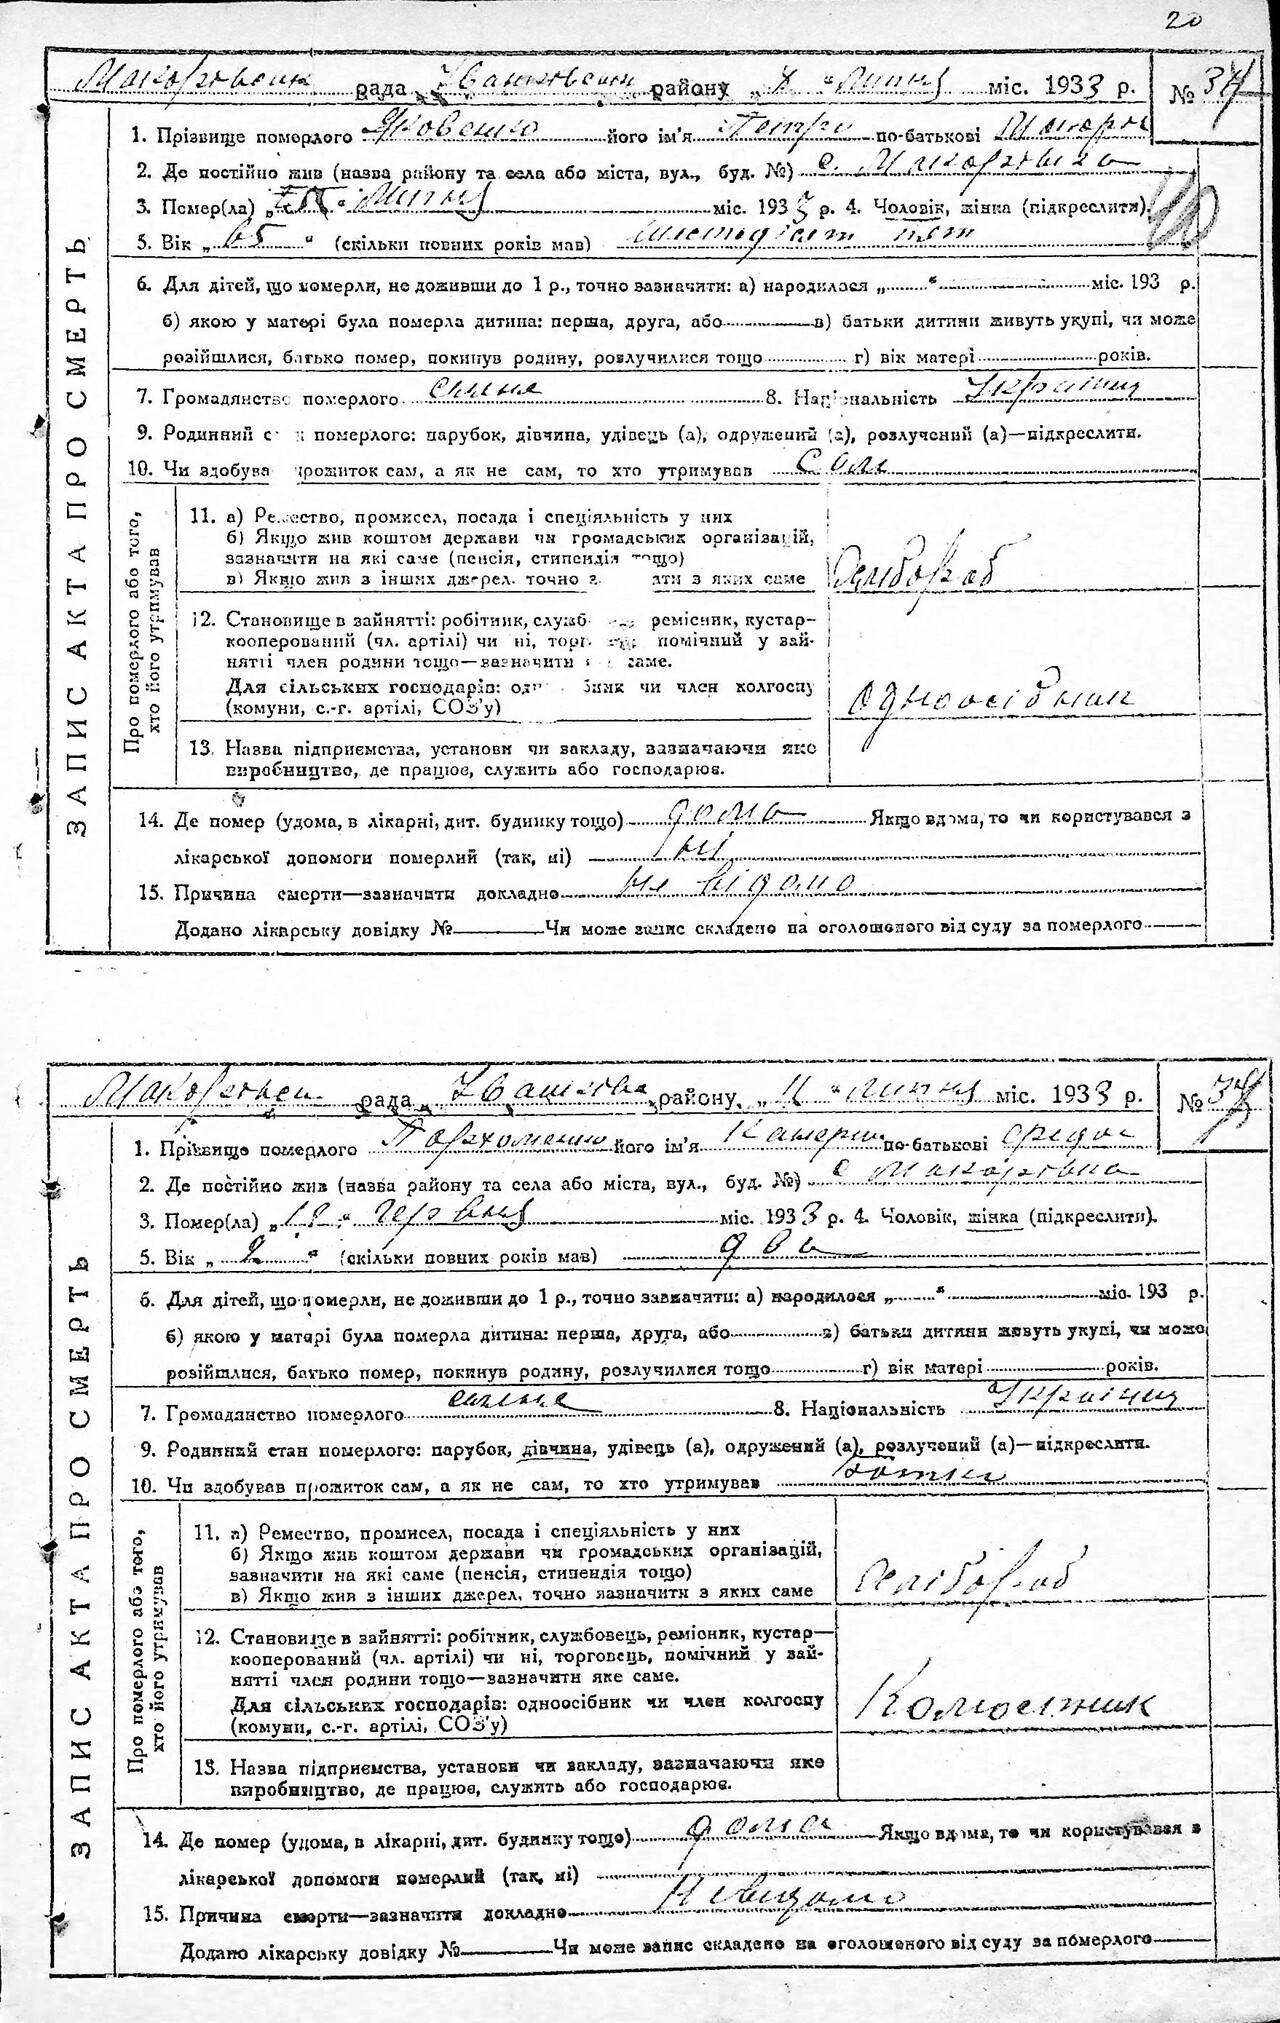 20
рада Іванковськ району „ " липня міс. 1933 р. №
1. Прізвище померлого Яковенко його ім'я Петро по-батькові Макаров
2. Де постійно жив (назва району та села або міста, вул., буд. №) с. Макаровка
3. Помер(ла) „ " липня міс. 1933 р. 4. Чоловік, жінка (підкреслити).
5. Вік „ 65 " (скільки повних років мав) шестьдісят пят
6. Для дітей, що померли, не доживши до 1 р., точно зазначити: а) народилася „ " міс. 193 р.
б) якою у матері була померла дитина: перша, друга, або в) батьки дитини живуть укупі, чи може
розійшлися, батько помер, покинув родину, розлучилися тощо г) вік матері років.
7. Громадянство померлого селяне 8. Національність Україниц
9. Родинний с н померлого: парубок, дівчина, удівець (а), одружений (а), розлучений (а)—підкреслити.
10. Чи здобува прожиток сам, а як не сам, то хто утримував сам
ЗАПИС АКТА ПРО СМЕРТЬ
Про померлого або того,
хто його утримував
11. а) Ремество, промисел, посада і спеціяльність у них
б) Якщо жив коштом держави чи громадських організацій,
зазначити на які саме (пенсія, стипендія тощо)
в) Якщо жив з інших джерел, точно з ати з яких саме
хлібороб
12. Становище в зайнятті: робітник, служб ремісник, кустар-
кооперований (чл. артілі) чи ні, торг помічний у зай-
нятті член родини тощо—зазначити саме.
Для сільських господарів: од бник чи член колгоспу
(комуни, с.-г. артілі, СОЗ'у)
одноосібник
13. Назва підприємства, установи чи закладу, зазначаючи яке
виробництво, де працює, служить або господарює.
14. Де помер (удома, в лікарні, дит. будинку тощо) дома Якщо вдома, то чи користувався з
лікарської допомоги померлий (так, ні) ні
15. Причина смерти—зазначити докладно не відомо
Додано лікарську довідку № Чи може запис складено на оголошеного від суду за померлого
рада Іванкове району „ " липня міс. 1933 р. №
1. Прізвище померлого Пархоменко його ім'я Катерин по-батькові Федос
2. Де постійно жив (назва району та села або міста, вул., буд. №) с Макаровка
3. Помер(ла) „ " червня міс. 1933 р. 4. Чоловік, жінка (підкреслити).
5. Вік „ 2 " (скільки повних років мав) два
6. Для дітей, що померли, не доживши до 1 р., точно зазначити: а) народилося „ " міс. 193 р.
б) якою у матері була померла дитина: перша, друга, або в) батьки дитини живуть укупі, чи може
розійшлися, батько помер, покинув родину, розлучилися тощо г) вік матері років.
7. Громадянство померлого селяне 8. Національність Україниц
9. Родинний стан померлого: парубок, дівчина, удівець (а), одружений (а), розлучений (а)—підкреслити.
10. Чи здобував прожиток сам, а як не сам, то хто утримував батьки
ЗАПИС АКТА ПРО СМЕРТЬ
Про померлого або того,
хто його утримував
11. а) Ремество, промисел, посада і спеціяльність у них
б) Якщо жив коштом держави чи громадських організацій,
зазначити на які саме (пенсія, стипендія тощо)
в) Якщо жив з інших джерел, точно зазначити з яких саме
хлібороб
12. Становище в зайнятті: робітник, службовець, ремісник, кустар—
кооперований (чл. артілі) чи ні, торговець, помічний у зай-
нятті член родини тощо—зазначити яке саме.
Для сільських господарів: одноосібник чи член колгоспу
(комуни, с.-г. артілі, СОЗ'у)
Колгоспник
13. Назва підприємства, установи чи закладу, зазначаючи яке
виробництво, де працює, служить або господарює.
14. Де помер (удома, в лікарні, дит. будинку тощо) дома Якщо вдома, то чи користувався з
лікарської допомоги померлий (так, ні)
15. Причина смерти—зазначити докладно невідомо
Додано лікарську довідку № Чи може запис складено на оголошеного від суду за померлого